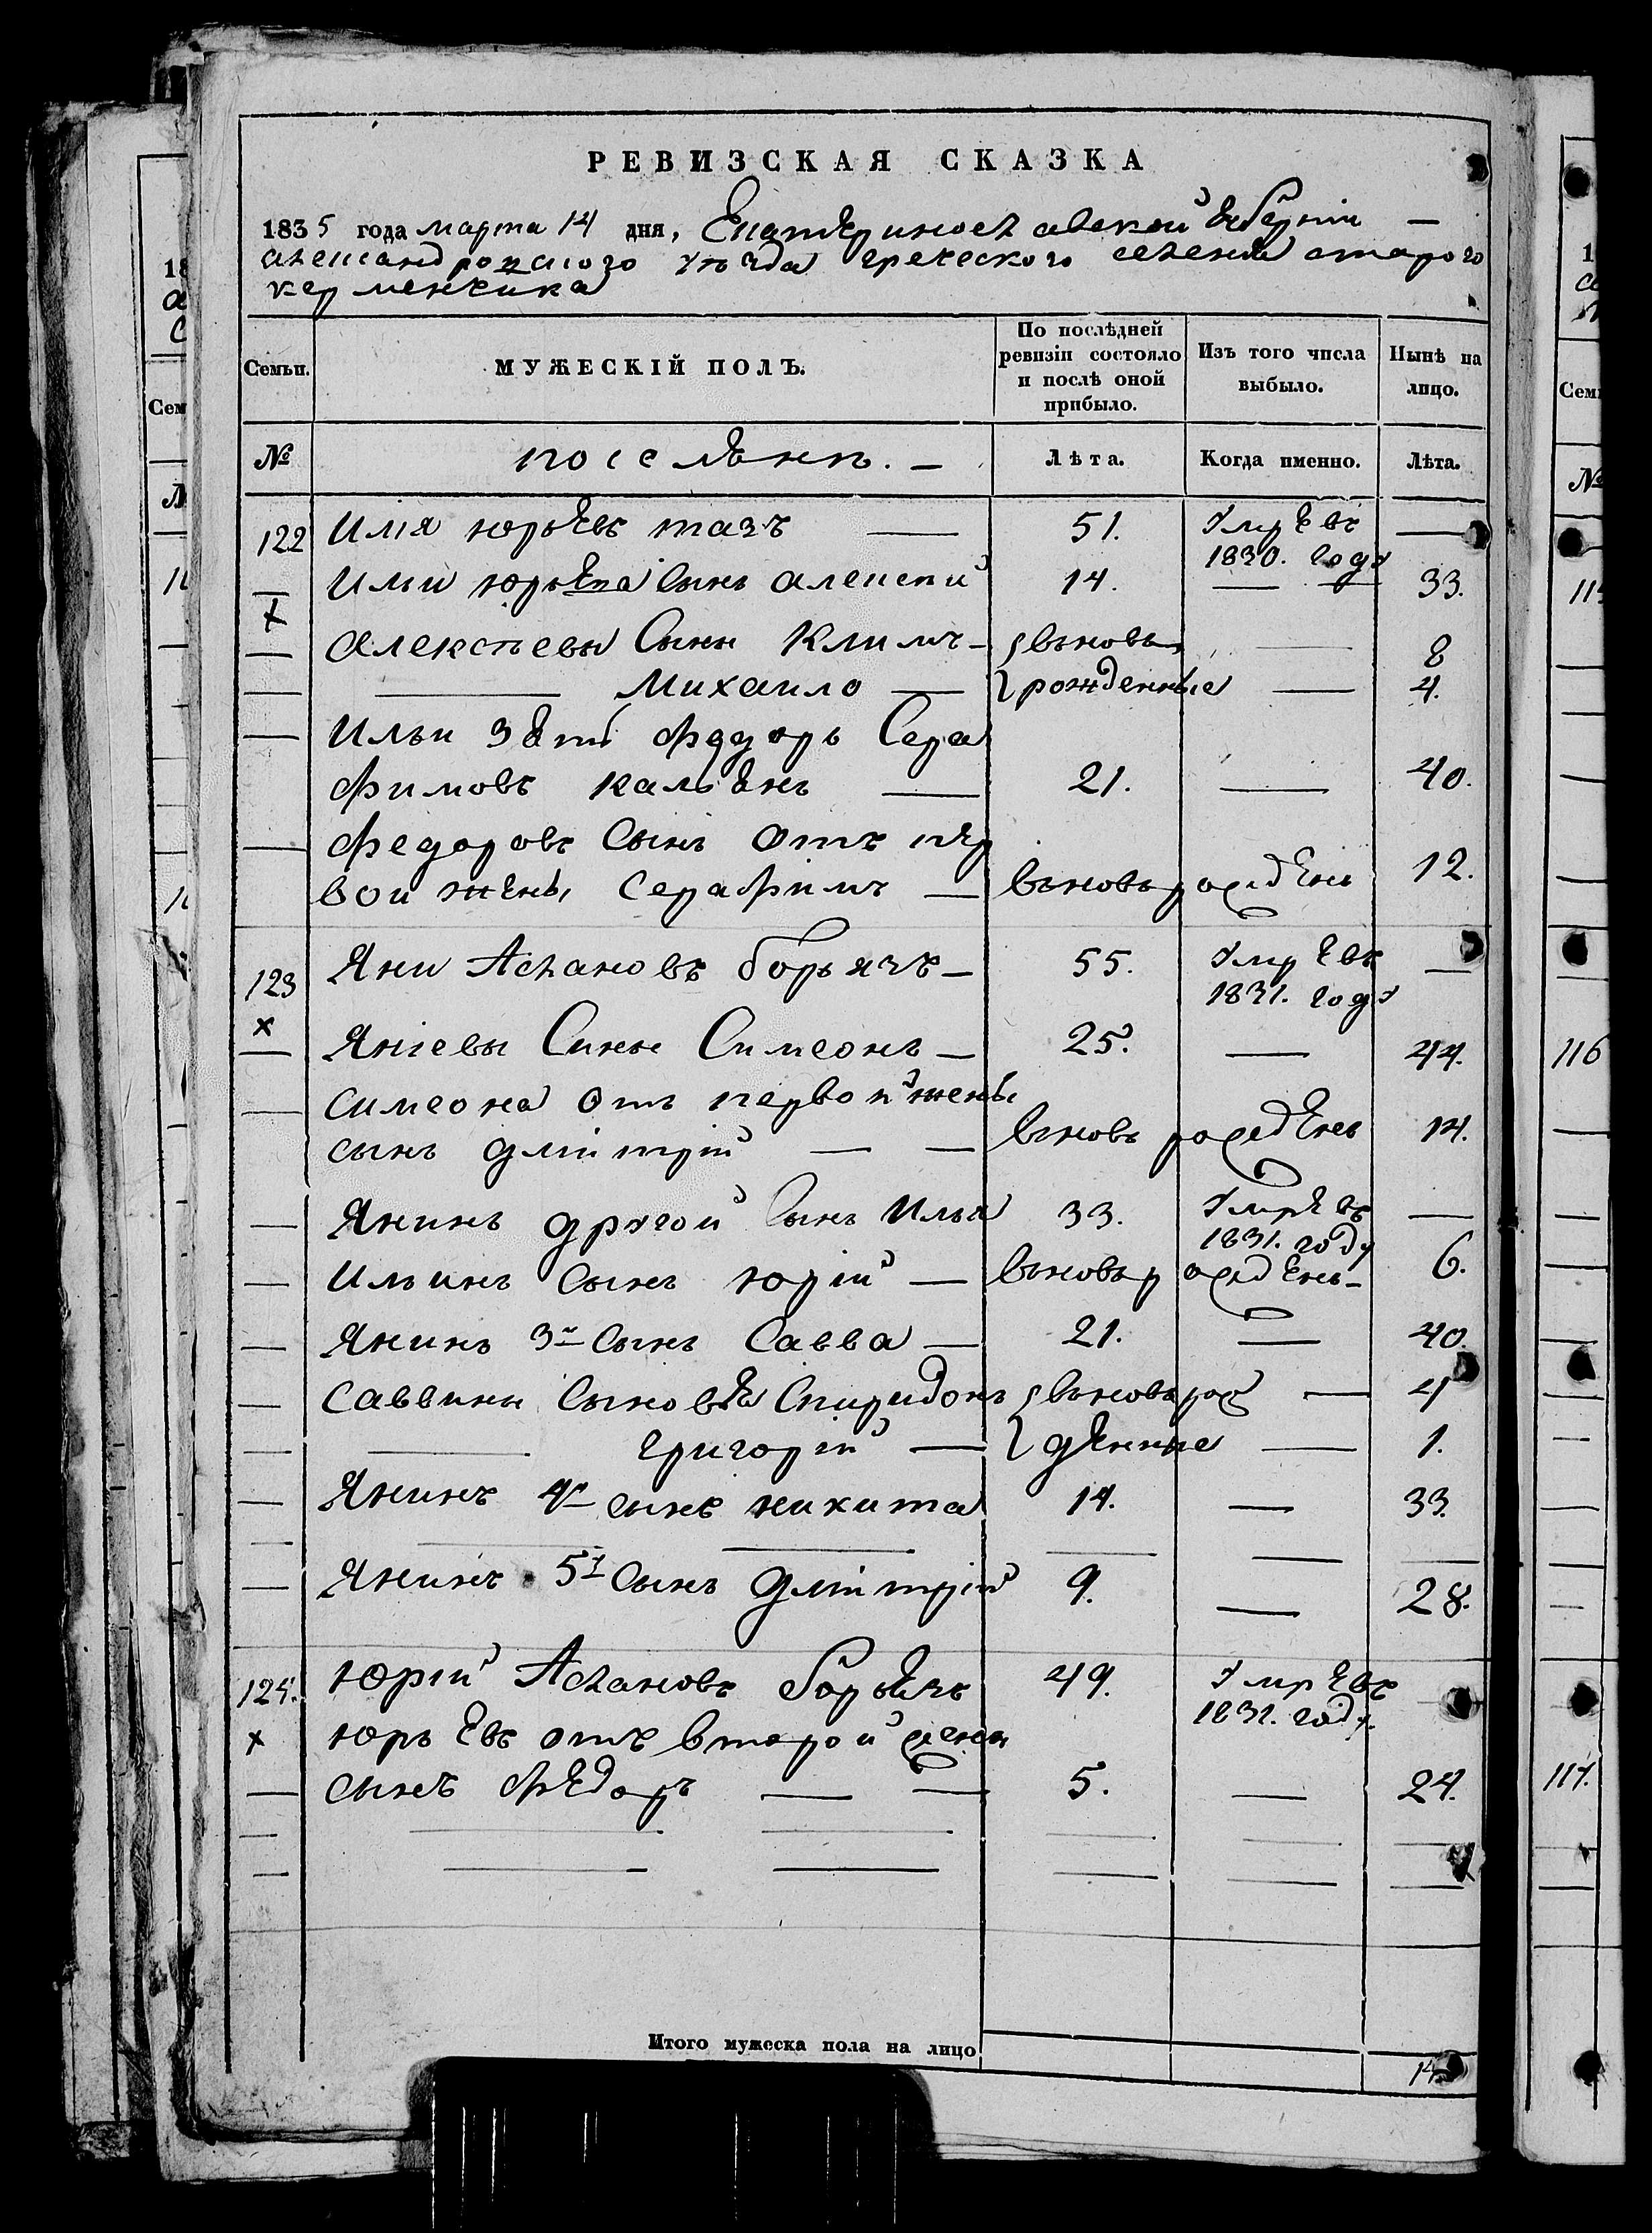 РЕВИЗСКАЯ СКАЗКА
1835 года марта 14 дня, Екатеринославской губерніи —
александровского уѣзда греческого селения старого
керменчика
Семьи. МУЖЕСКІЙ ПОЛЪ. По послѣдней ревизіи состояло и послѣ оной прибыло. Изъ того числа выбыло. Нынѣ на лицо.
№ поселянъ. — Лѣта. Когда именно. Лѣта.
122 Илія юрьевъ тазъ — 51. умре въ 1830. году —
— Ильи юрьева сынъ алексей 14. — — 33.
х
— Алексѣевы Сыны Климъ — вьновь — 8
— — Михаило — рожденные — 4.
— Ильи зеть федоръ Сера
фимовъ кальенъ — 21. — 40.
— федоровъ Сынъ отъ пер
вои жены серафимъ — вьновь рожденъ 12.
123 Яни Аслановъ борьязъ — 55. умре въ 1831. году —
х
— Яніевы Сыны Симеонъ — 25. — 44.
— симеона отъ первой жены
сынъ дмітрій — — вьновь рожденъ 14.
— Янинъ другой сынъ Илья 33. умре въ 1831. году —
— Ильинъ сынъ юрій — вьновь рожденъ — 6.
— Янинъ 3й сынъ Савва — 21. — 40.
— саввины сыновья Спиридонъ вьновь рож — 4
— — григорій — денные — 1.
— Янинъ 4й сынъ никита 14. — 33.
— — — — — —
— Янинъ 5й сынъ дмітрій 9. — 28.
124. юрій Аслановъ борьязъ 49. умре въ 1831. году. —
х юрьевъ отъ второй жены
— сынъ федоръ — — 5. — 24.
— — — — — —
— — — — — —
Итого мужеска пола на лицо 14
116
117.